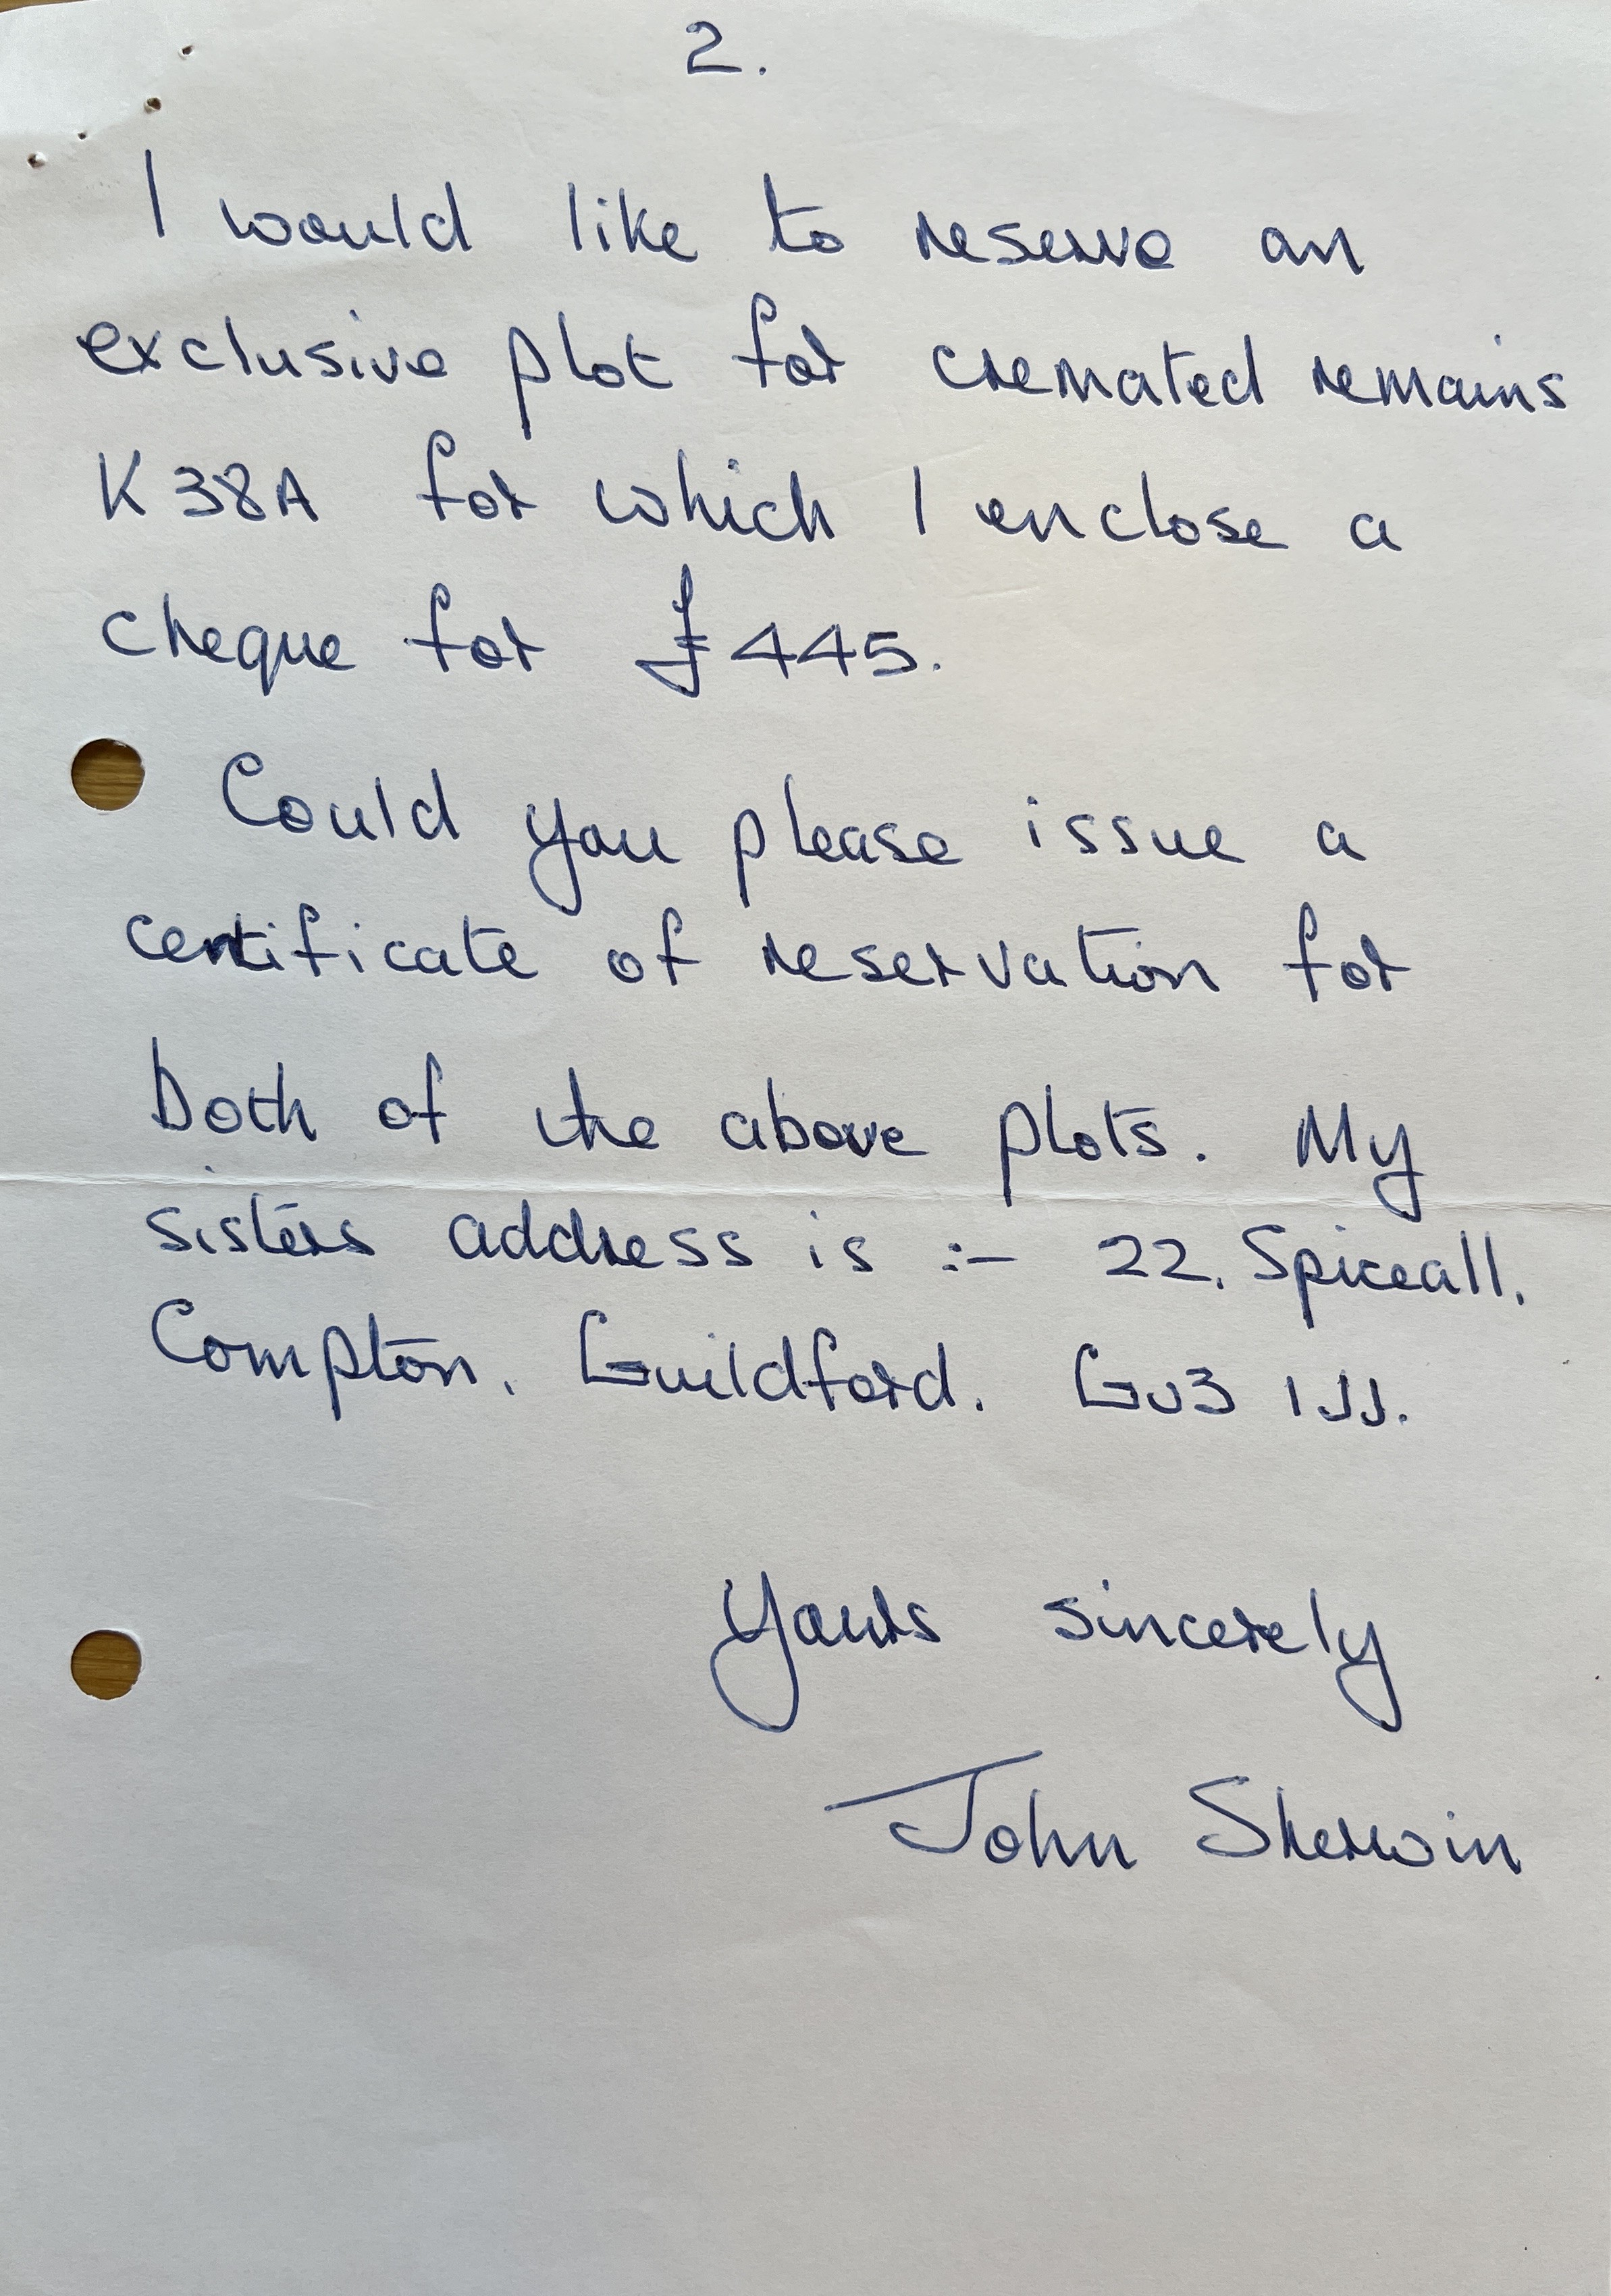 2.
I would like to reserve an
exclusive plot for cremated remains
K38A for which I enclose a
cheque for £445.
Could you please issue a
certificate of reservation for
both of the above plots. My
sisters address is :- 22. Spiceall.
Compton. Guildford. GU3 1JJ.
Yours sincerely
John Sherwin